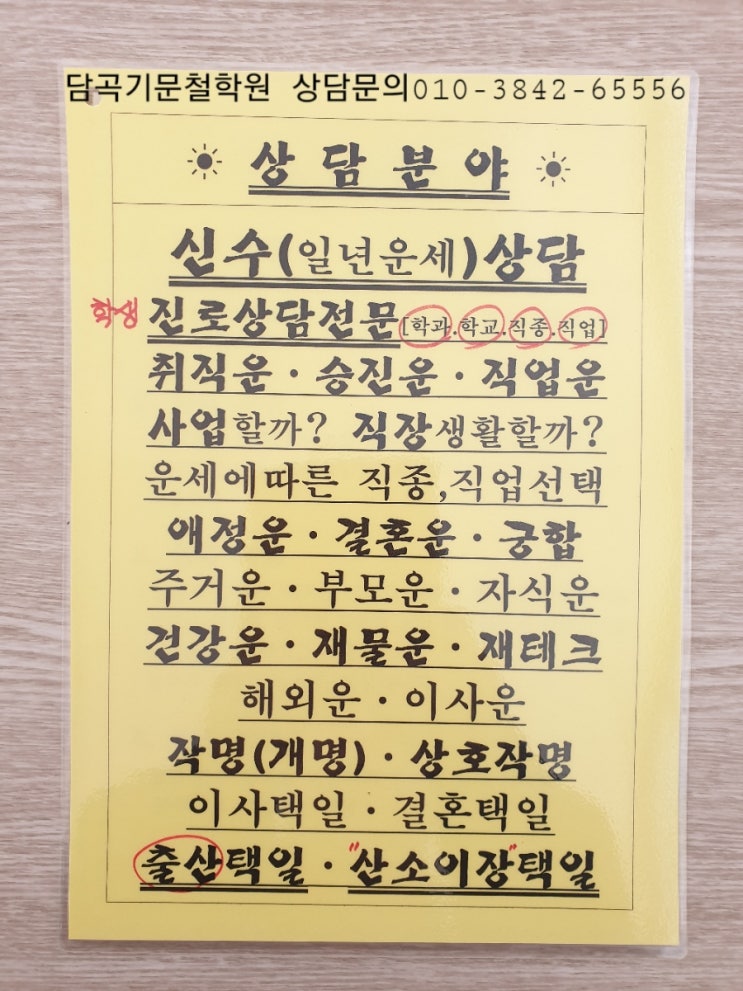 담곡기문철학원 상담문의010-3842-65556
상담분야
신수(일년운세)상담
학생 진로상담전문[학과.학교.직종.직업]
취직운·승진운·직업운
사업할까? 직장생활할까?
운세에따른 직종,직업선택
애정운·결혼운·궁합
주거운·부모운·자식운
건강운·재물운·재테크
해외운·이사운
작명(개명)·상호작명
이사택일·결혼택일
출산택일·"산소이장"택일